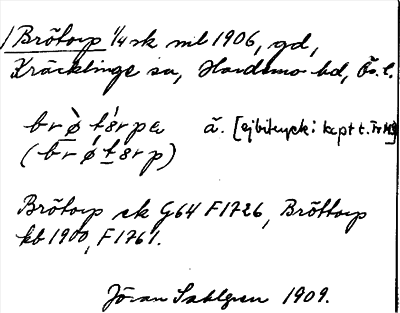 1 Brötorp 1/4 sk ml 1906, gd,
Kräcklinge sn, Hardemo hd, Ös. l.
brø̀t́ɘrpa ä. [ejbitryck:
(brǿtɘrp)
Brötorp sk G64 F1726, Bröttorp
kb 1900, F1761.
Jöran Sahlgren 1909.